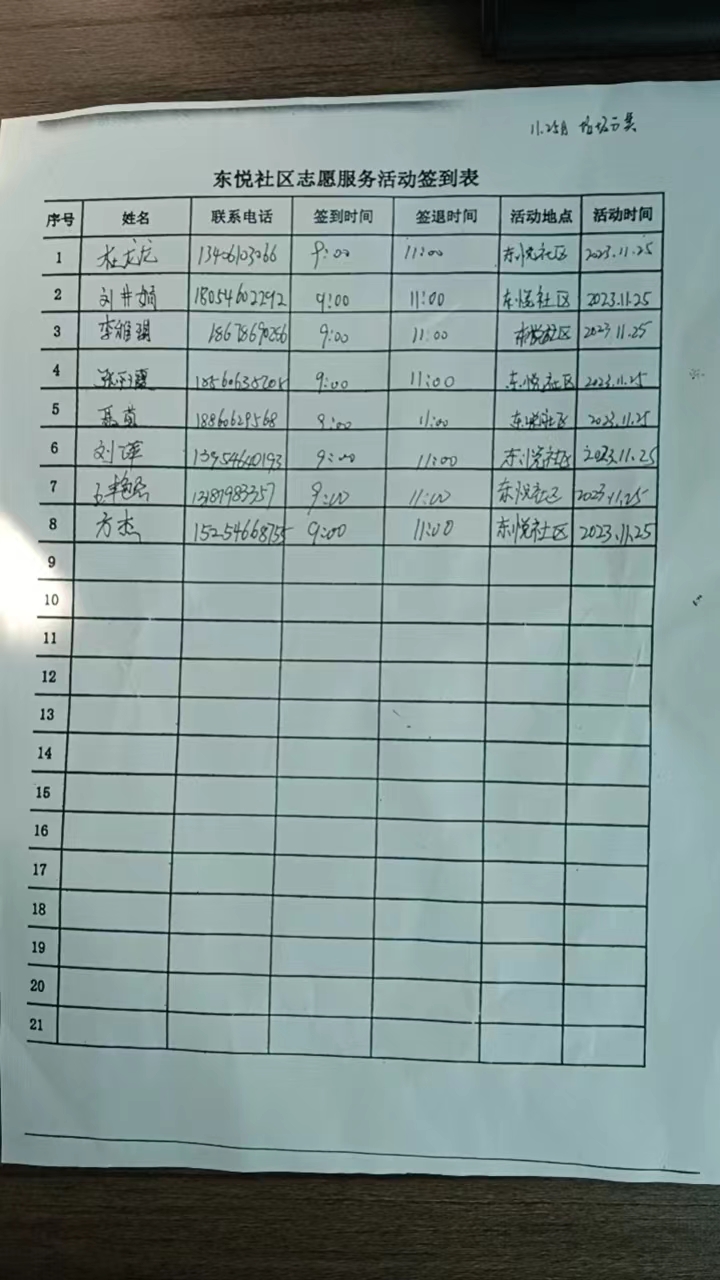 11.25日 垃圾分类
东悦社区志愿服务活动签到表
序号 姓名 联系电话 签到时间 签退时间 活动地点 活动时间
1 杜龙龙 13406103266 9:00 11:00 东悦社区 2023.11.25
2 刘井娟 18054602292 9:00 11:00 东悦社区 2023.11.25
3 李雅琪 18678690256 9:00 11:00 东悦社区 2023.11.25
4 9:00 11:00 东悦社区 2023.11.25
5 18860629568 9:00 11:00 东悦社区 2023.11.25
6 刘萍 13954640193 9:00 11:00 东悦社区 2023.11.25
7 13181983357 9:00 11:00 东悦社区 2023.11.25
8 方杰 15254668755 9:00 11:00 东悦社区 2023.11.25
9
10
11
12
13
14
15
16
17
18
19
20
21